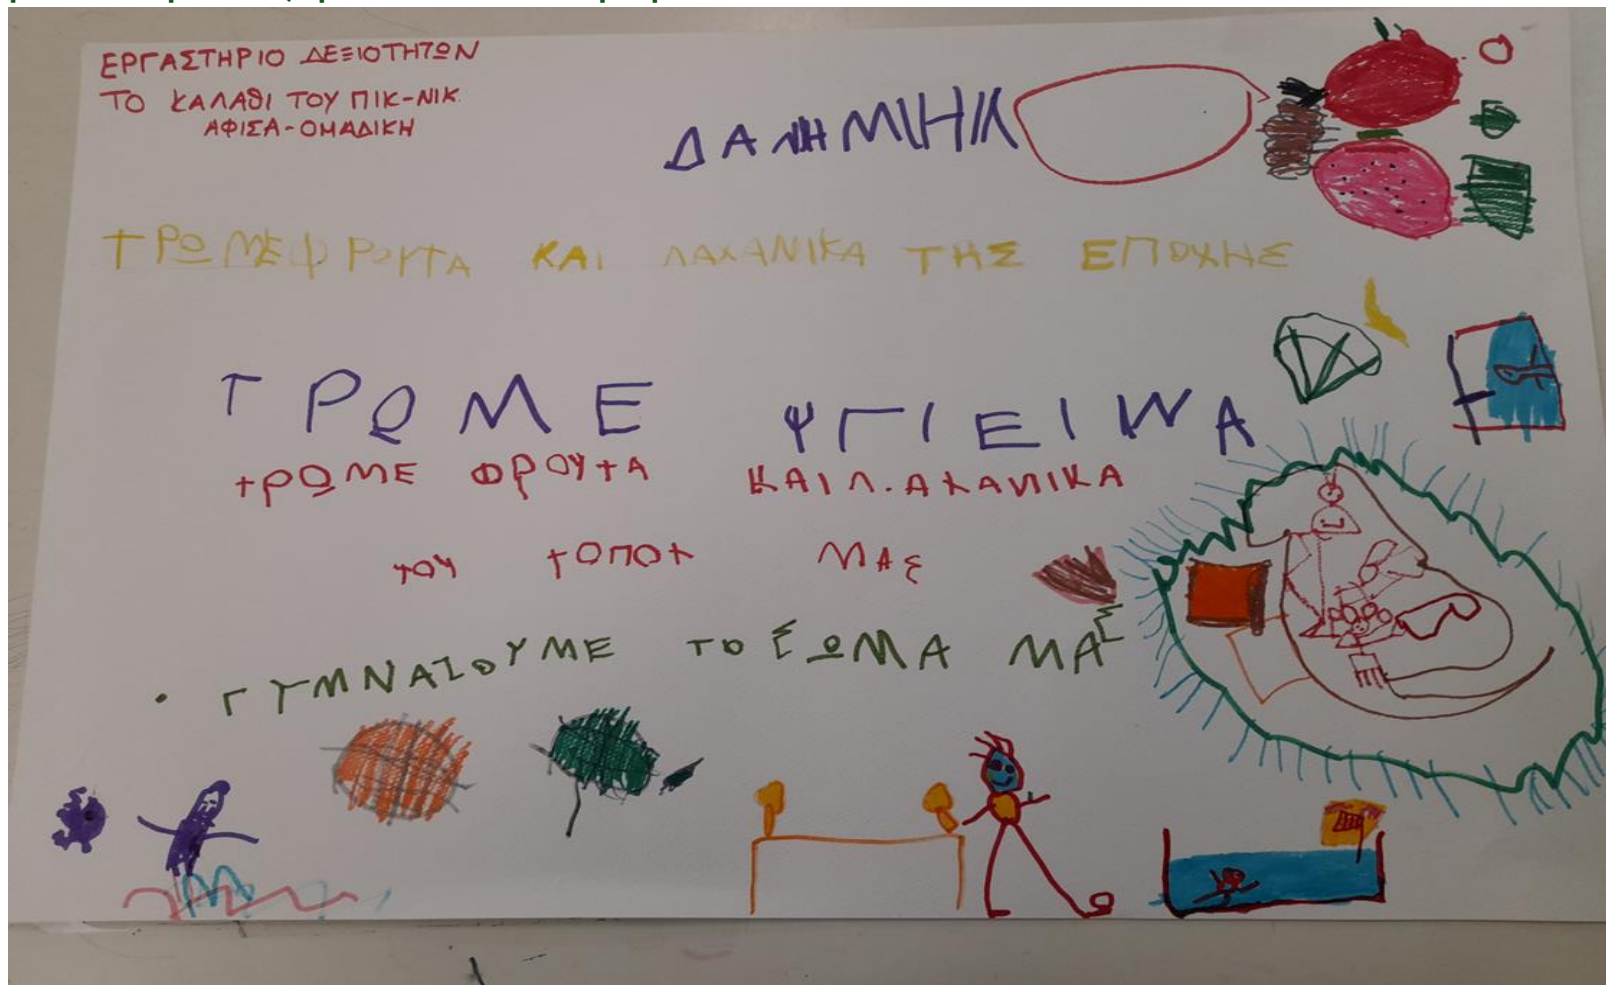 ΕΡΓΑΣΤΗΡΙΟ ΔΕΞΙΟΤΗΤΩΝ
ΤΟ ΚΑΛΑΘΙ ΤΟΥ ΠΙΚ-ΝΙΚ
ΑΦΙΣΑ-ΟΜΑΔΙΚΗ
ΤΡΩΜΕ ΦΡΟΥΤΑ ΚΑΙ ΛΑΧΑΝΙΚΑ ΤΗΣ ΕΠΟΧΗΣ
ΤΡΩΜΕ ΥΓΙΕΙΝΑ
ΤΡΩΜΕ ΦΡΟΥΤΑ ΚΑΙ Λ.ΑΧΑΝΙΚΑ
ΤΟΥ ΤΟΠΟΥ ΜΑΣ
• ΓΥΜΝΑΖΟΥΜΕ ΤΟ ΣΩΜΑ ΜΑΣ